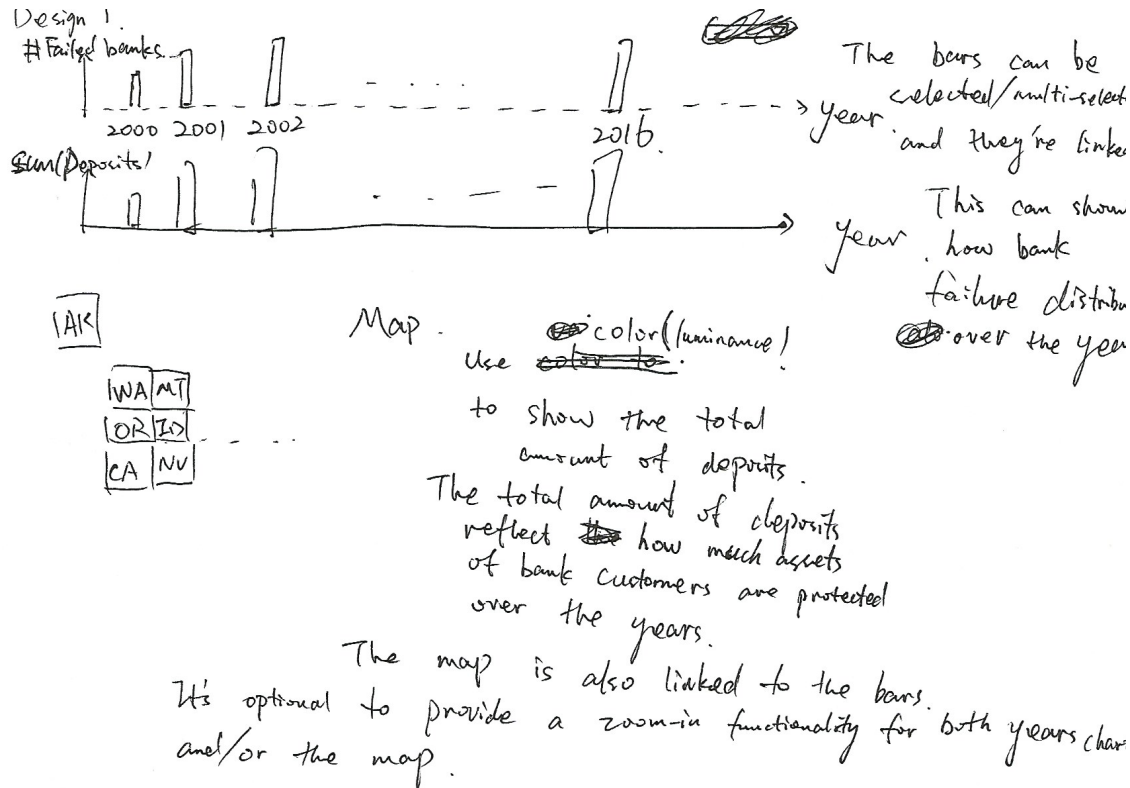 Design 1.
#Failed banks
2000 2001 2002 2016
year
The bars can be
selected/multi-select
and they're linked
Sum(Deposits)
year
This can show
how bank
failure distribu
over the year
AK
WA MT
OR ID
CA NV
Map.
Use color(luminance)
to show the total
amount of deposits.
The total amount of deposits
reflect how much assets
of bank customers are protected
over the years.
The map is also linked to the bars.
It's optional to provide a zoom-in functionality for both years char
and/or the map.